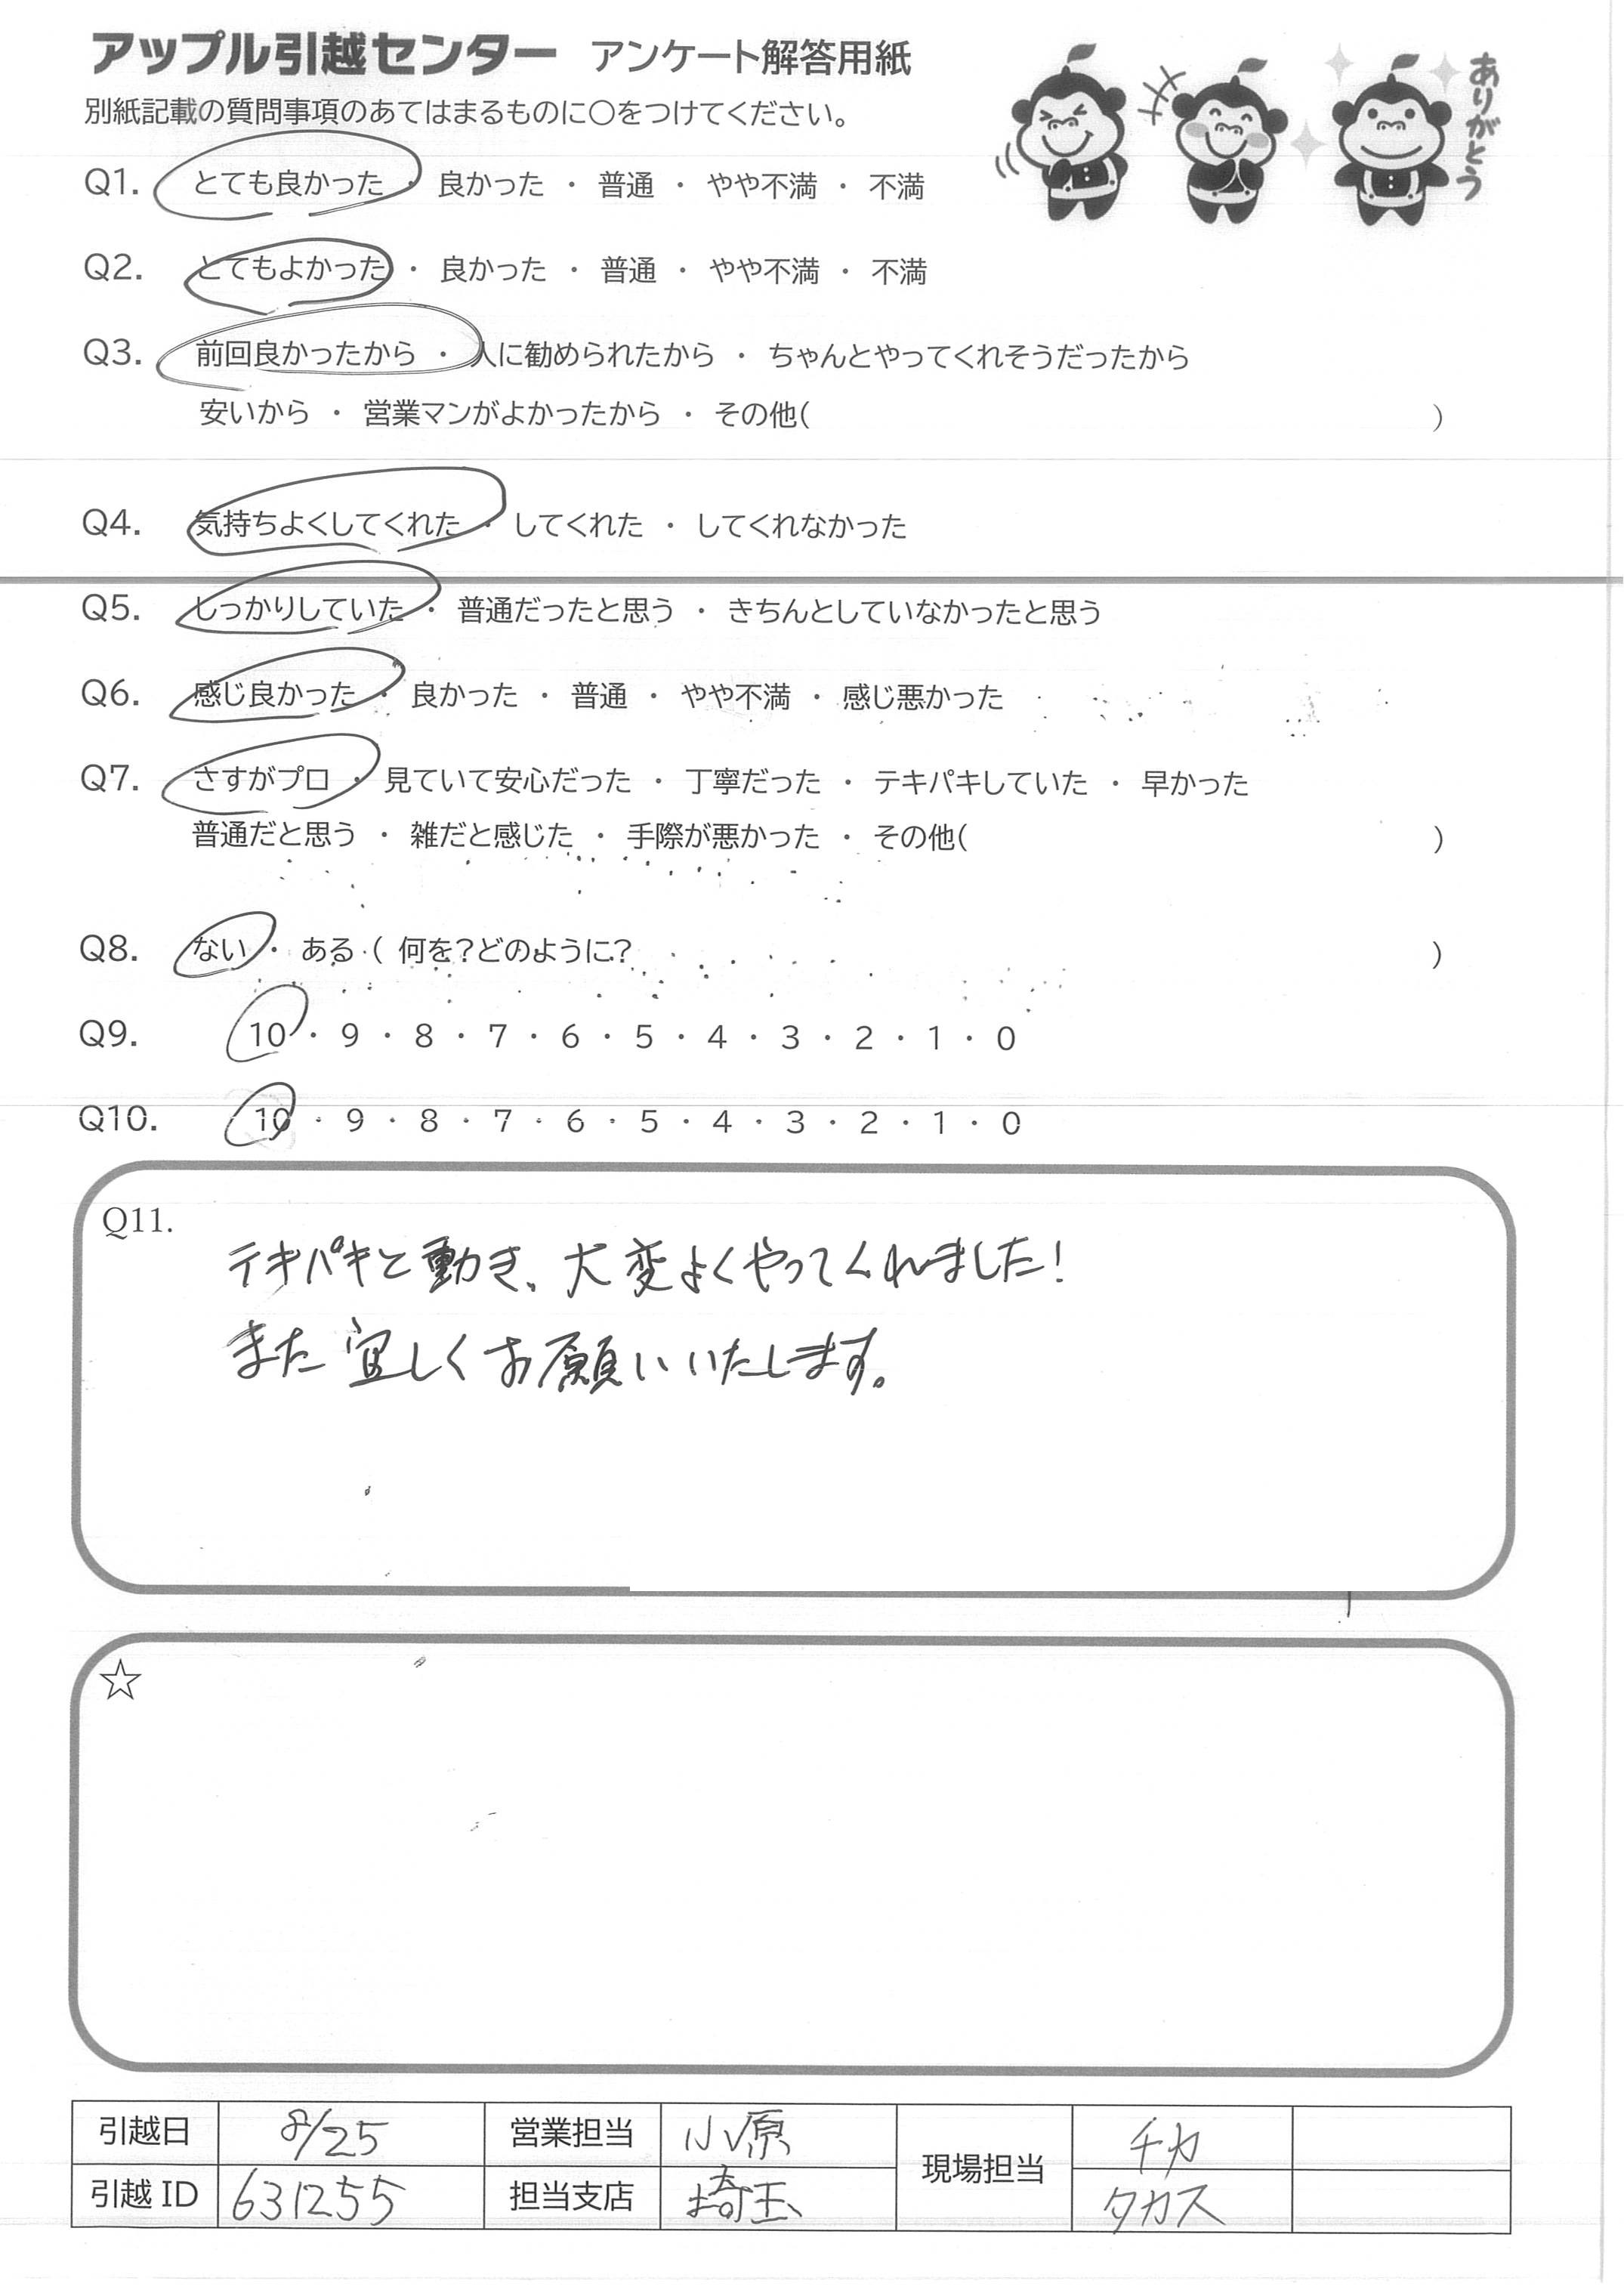 アップル引越センター アンケート解答用紙
ありがとう
別紙記載の質問事項のあてはまるものに○をつけてください。
Q1. とても良かった ・ 良かった ・ 普通 ・ やや不満 ・ 不満
Q2. とてもよかった ・ 良かった ・ 普通 ・ やや不満 ・ 不満
Q3. 前回良かったから ・ 人に勧められたから ・ ちゃんとやってくれそうだったから
安いから ・ 営業マンがよかったから ・ その他( )
Q4. 気持ちよくしてくれた ・ してくれた ・ してくれなかった
Q5. しっかりしていた ・ 普通だったと思う ・ きちんとしていなかったと思う
Q6. 感じ良かった ・ 良かった ・ 普通 ・ やや不満 ・ 感じ悪かった
Q7. さすがプロ ・ 見ていて安心だった ・ 丁寧だった ・ テキパキしていた ・ 早かった
普通だと思う ・ 雑だと感じた ・ 手際が悪かった ・ その他( )
Q8. ない ・ ある ( 何を?どのように? )
Q9. 10 ・ 9 ・ 8 ・ 7 ・ 6 ・ 5 ・ 4 ・ 3 ・ 2 ・ 1 ・ 0
Q10. 10 ・ 9 ・ 8 ・ 7 ・ 6 ・ 5 ・ 4 ・ 3 ・ 2 ・ 1 ・ 0
Q11.
テキパキと動き、大変よくやってくれました!
また宜しくお願いいたします。
☆
引越日 8/25 営業担当 小原 現場担当 チカ
引越ID 631255 担当支店 埼玉 タカス